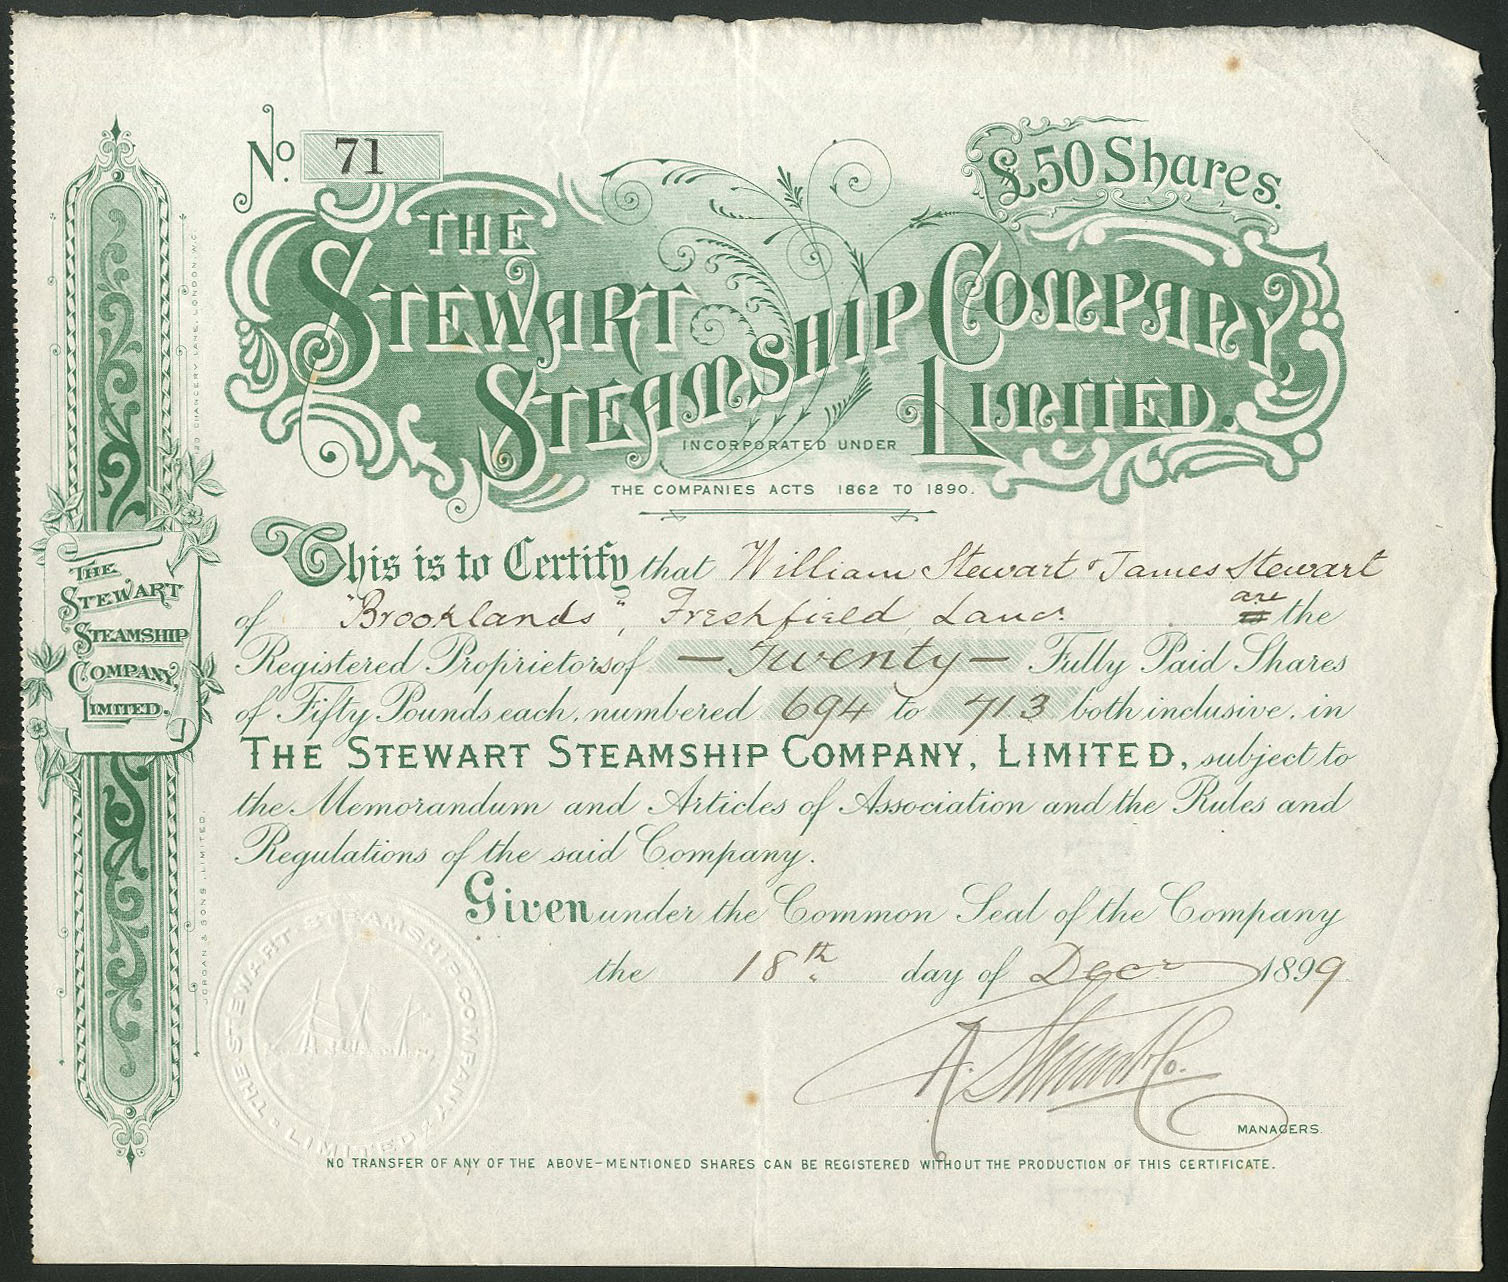 No. 71
£50 Shares.
THE
STEWART
STEAMSHIP COMPANY,
LIMITED.
INCORPORATED UNDER
THE COMPANIES ACTS 1862 TO 1890.
This is to Certify that William Stewart & James Stewart
of "Brooklands", Freshfield, Lancr. are the
Registered Proprietors of — Twenty — Fully Paid Shares
of Fifty Pounds each, numbered 694 to 713 both inclusive, in
THE STEWART STEAMSHIP COMPANY, LIMITED, subject to
the Memorandum and Articles of Association and the Rules and
Regulations of the said Company.
Given under the Common Seal of the Company
the 18th day of Decr 1899
A. Stewart & Co.
MANAGERS.
NO TRANSFER OF ANY OF THE ABOVE-MENTIONED SHARES CAN BE REGISTERED WITHOUT THE PRODUCTION OF THIS CERTIFICATE.
THE
STEWART
STEAMSHIP
COMPANY,
LIMITED.
JORDAN & SONS, LIMITED.
120 CHANCERY LANE, LONDON. W.C.
THE STEWART STEAMSHIP COMPANY LIMITED